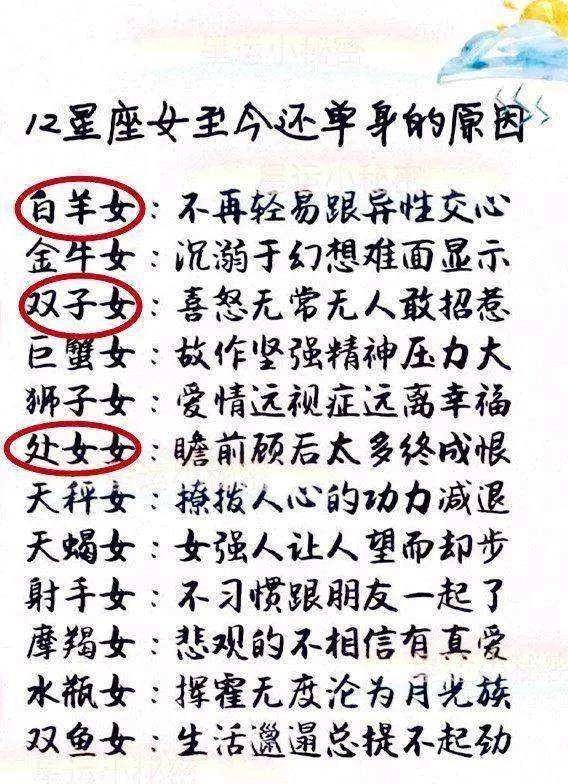 12星座女至今还单身的原因
白羊女：不再轻易跟异性交心
金牛女：沉溺于幻想难面显示
双子女：喜怒无常无人敢招惹
巨蟹女：故作坚强精神压力大
狮子女：爱情远视症远离幸福
处女女：瞻前顾后太多终成恨
天秤女：撩拨人心的功力减退
天蝎女：女强人让人望而却步
射手女：不习惯跟朋友一起了
摩羯女：悲观的不相信有真爱
水瓶女：挥霍无度沦为月光族
双鱼女：生活邋遢总提不起劲